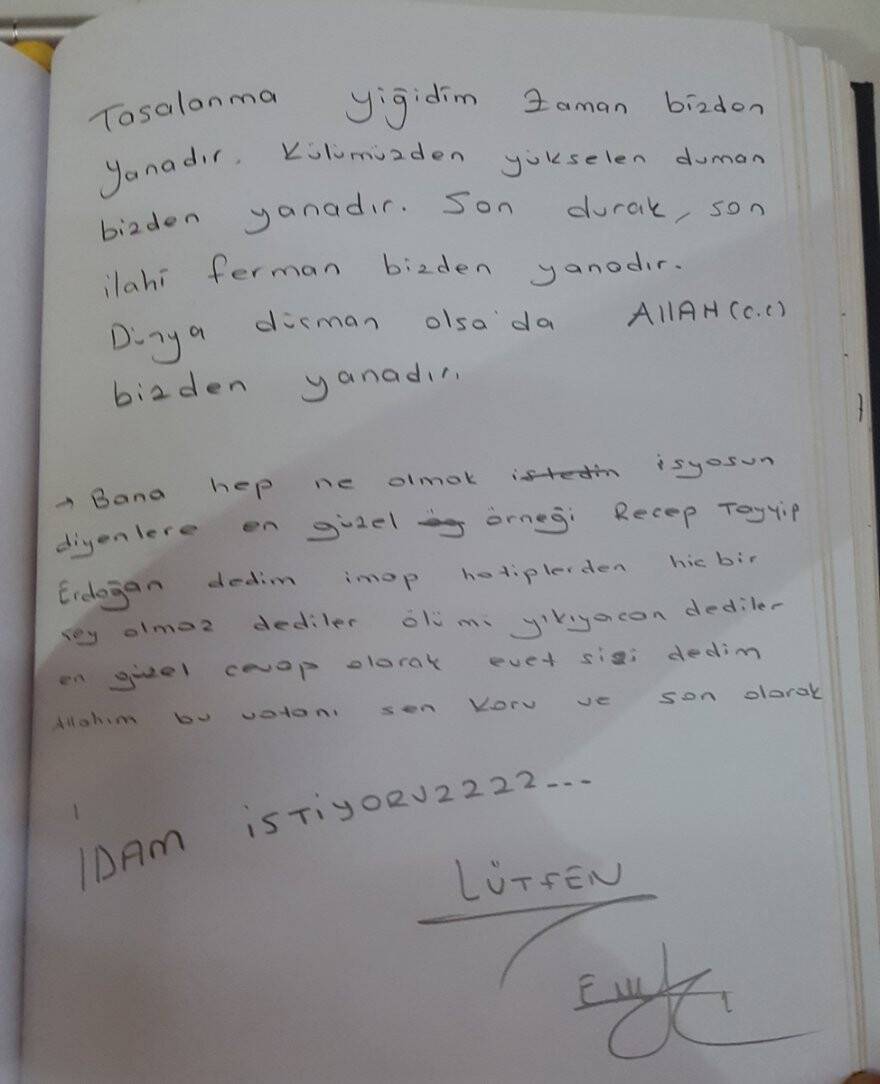 Tasalanma yiğidim zaman bizden
yanadır. Külümüzden yükselen duman
bizden yanadır. Son durak, son
ilahi ferman bizden yanadır.
Dünya düşman olsa'da AllAH (c.c)
bizden yanadır.
→ Bana hep ne olmak istedin isyosun
diyenlere en güzel örneği Recep Tayyip
Erdoğan dedim imap hatiplerden hic bir
şey olmaz dediler ölü mi yıkıyacan dediler
en güzel cevap olarak evet sizi dedim
Allahım bu vatanı sen koru ve son olarak
İDAM iSTiyORUZZZZ...
LÜTFEN